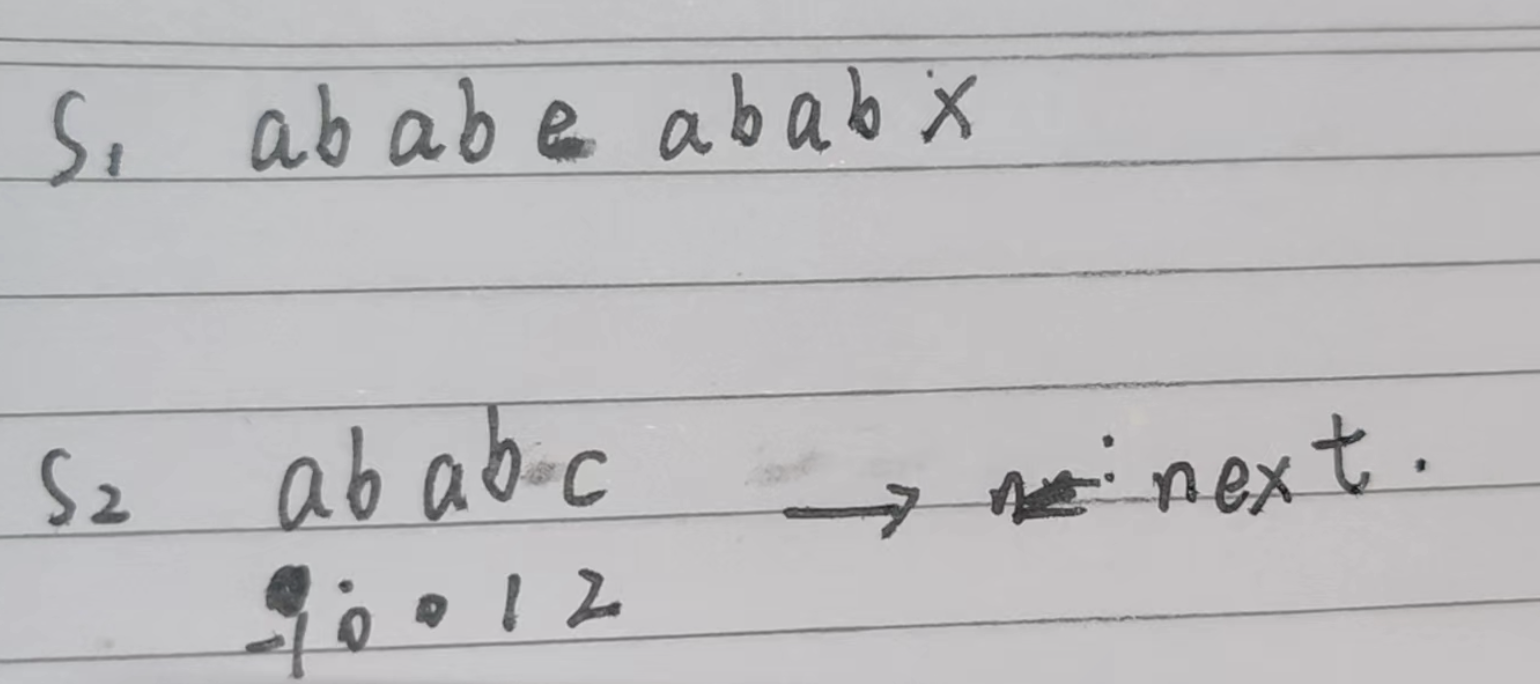 S1 ababe ababx
S2 ababc → next.
-1 0 0 1 2